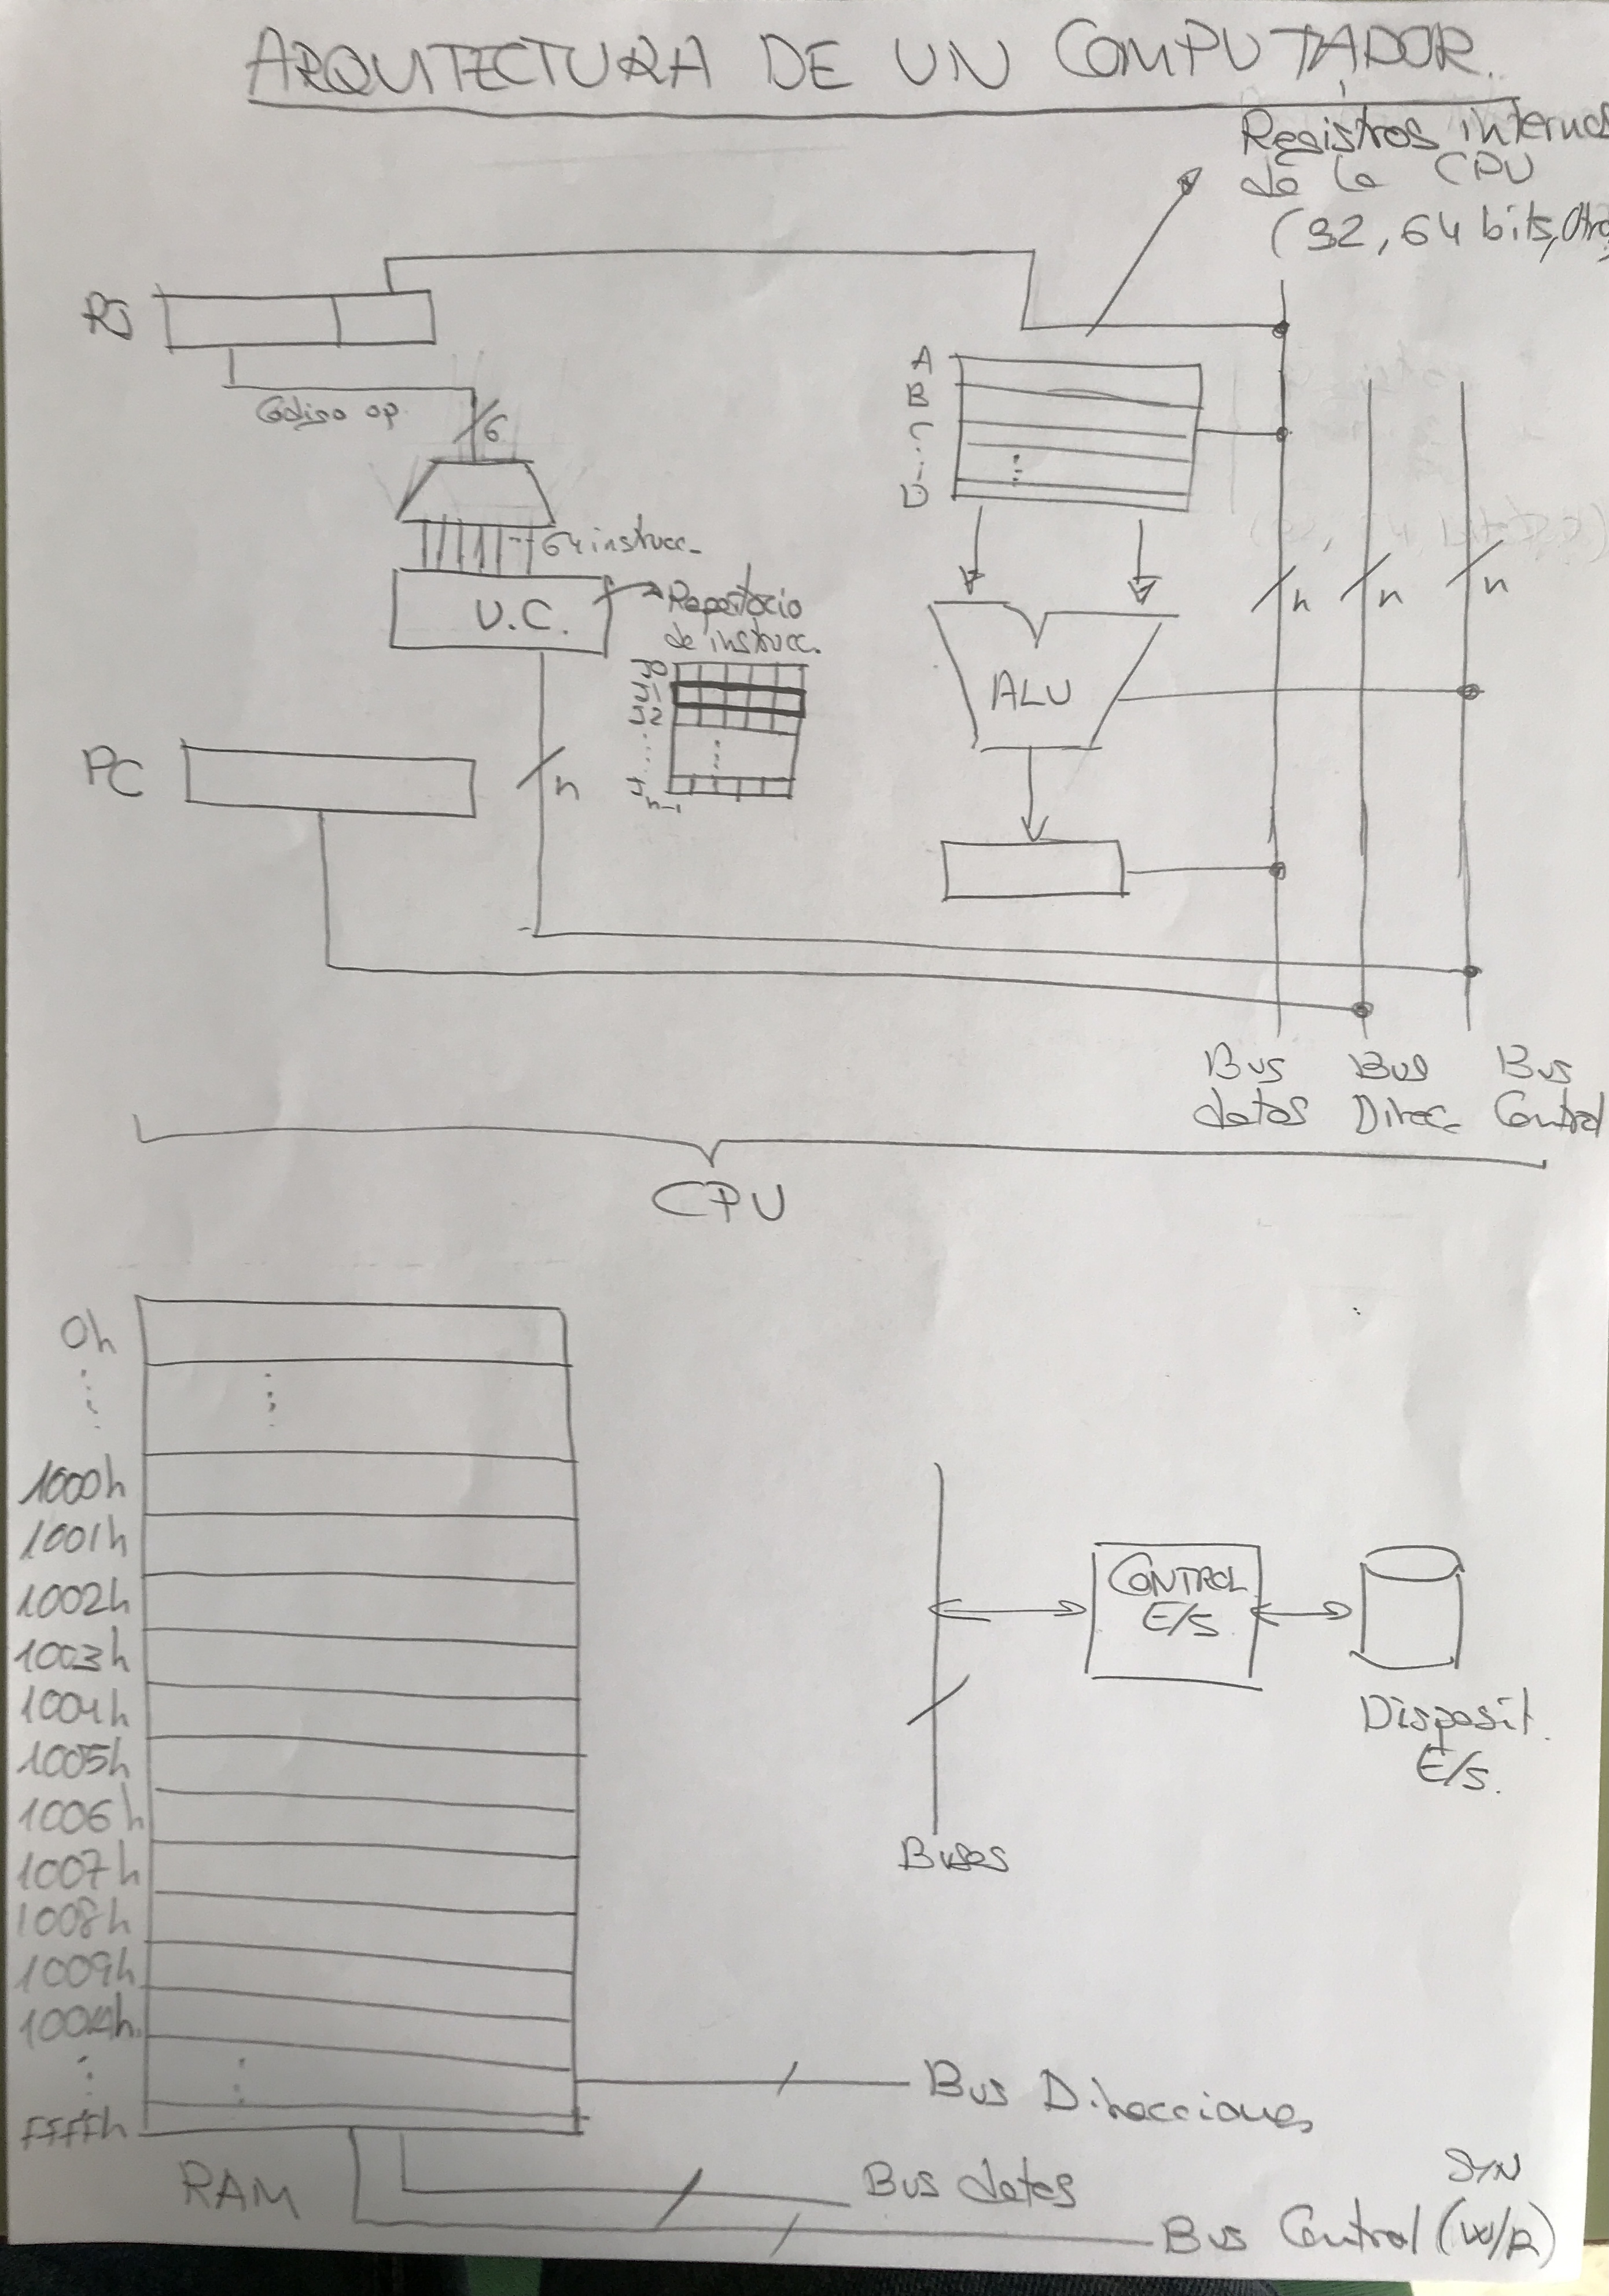 ARQUITECTURA DE UN COMPUTADOR.
Registros internos
de la CPU
(32, 64 bits, Otro
Código op
6
64 instrucc.
U.C.
Repertorio
de instrucc.
I0
I1
I2
In-1
n
PC
A
B
C
D
ALU
n
n
n
Bus
datos
Bus
Direc
Bus
Control
CPU
0h
1000h
1001h
1002h
1003h
1004h
1005h
1006h
1007h
1008h
1009h
100Ah
FFFFh
RAM
CONTROL
E/S
Disposit.
E/S.
Buses
Bus Direcciones
Bus datos
Bus Control (W/R)